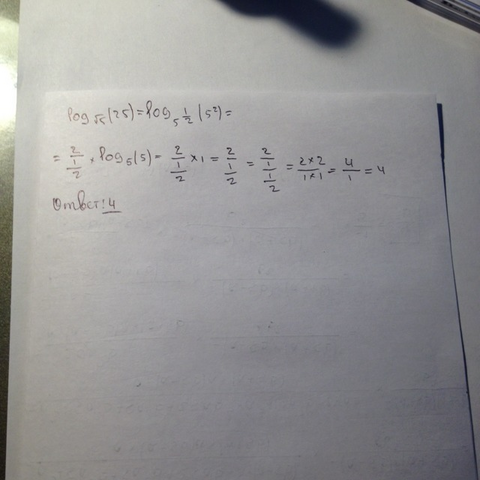 log_√5(25) = log_5^(1/2)(5²) =
= 2/(1/2) × log_5(5) = 2/(1/2) × 1 = 2/(1/2) = (2/1)/(1/2) = (2×2)/(1×1) = 4/1 = 4
Ответ: 4